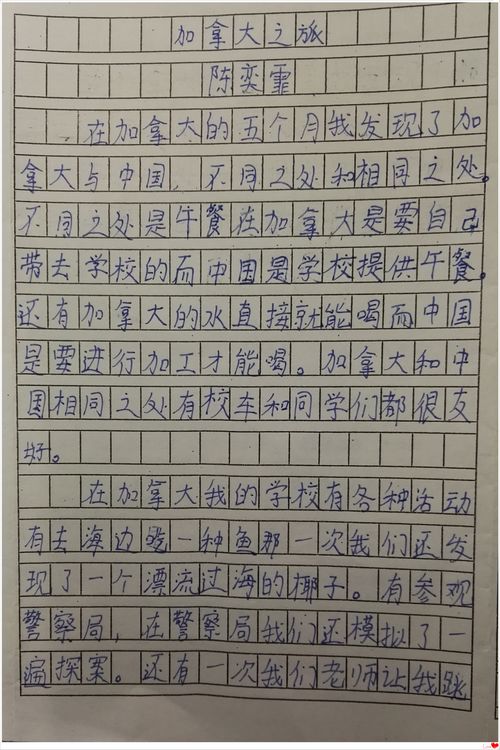 加拿大之旅
陈奕霏
在加拿大的五个月我发现了加
拿大与中国，不同之处和相同之处。
不同之处是午餐在加拿大是要自己
带去学校的而中国是学校提供午餐。
还有加拿大的水直接就能喝而中国
是要进行加工才能喝。加拿大和中
国相同之处有校车和同学们都很友
好。
在加拿大我的学校有各种活动
有去海边吃一种鱼那一次我们还发
现了一个漂流过海的椰子。有参观
警察局，在警察局我们还模拟了一
遍探案。还有一次我们老师让我跳